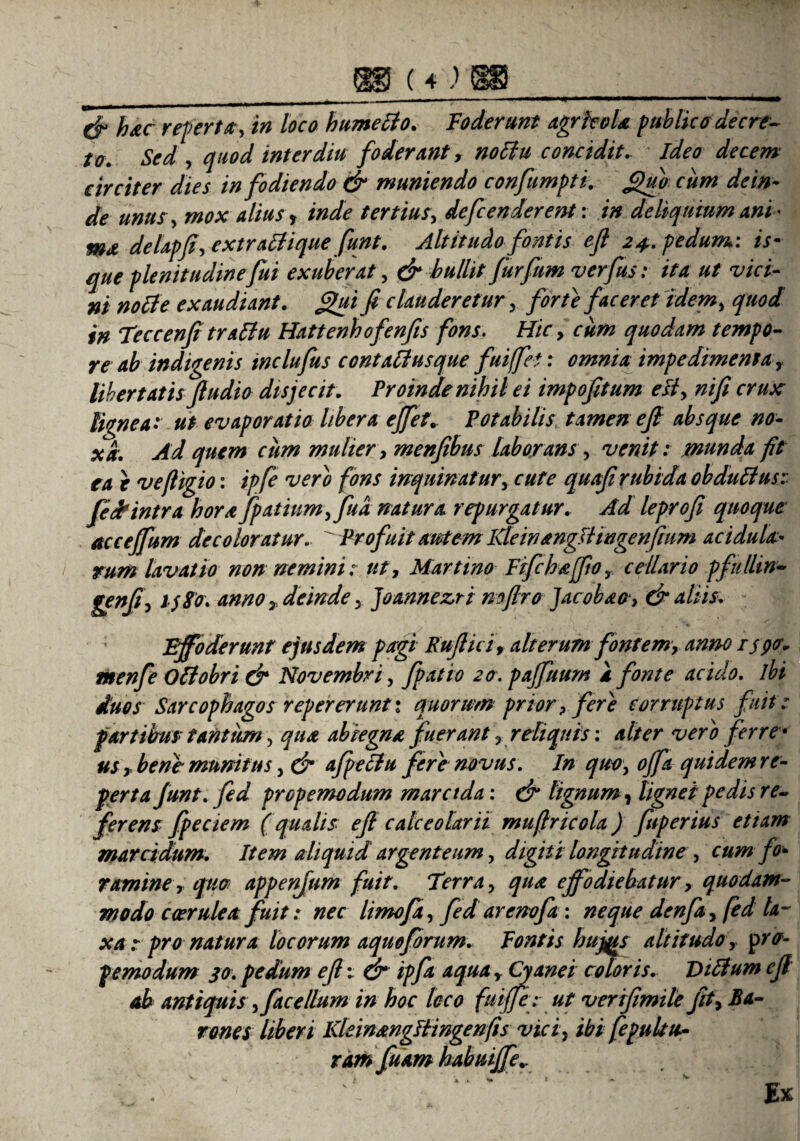 ( 4 )
& hæc reperta, in loco humecto. Foderunt agricolæ publico decre-
to. Sed, quod interdiu foderant, noctu concidit. Ideo decem
circiter dies in fodiendo & muniendo consumpti. Quo cùm dein-
de unus, mox alius, inde tertius, descenderent: in deliquium ani-
mæ delapsi, extractique sunt. Altitudo fontis est 24. pedum: is-
que plenitudine sui exuberat, & bullit sursum versus: ita ut vici-
ni nocte exaudiant. Qui si clauderetur, fortè faceret idem, quod
in Teccensi tractu Hattenhofensis fons. Hic, cùm quodam tempo-
re ab indigenis inclusus contactusque fuisset: omnia impedimenta,
libertatis studio disjecit. Proinde nihil ei impositum est, nisi crux
lignea: ut evaporatio libera esset. Potabilis tamen est absque no-
xâ. Ad quem cùm mulier, mensibus laborans, venit: munda fit
ea è vestigio: ipse verò fons inquinatur, cute quasi rubida obductus:
sed intra horæ spatium, suâ natura repurgatur. Ad leprosi quoque
accessum decoloratur. Profuit autem Kleinængstingensium acidula-
rum lavatio non nemini: ut, Martino Fischæssio, cellario pfullin-
gensi, 1580. anno, deinde, Joannezri nostro Jacobæo, & aliis.
Effoderunt ejusdem pagi Rustici, alterum fontem, anno 1590.
mense Octobri & Novembri, spatio 20. passuum à fonte acido. Ibi
duos Sarcophagos repererunt: quorum prior, ferè corruptus fuit:
partibus tantùm, quæ abiegnæ fuerant, reliquis: alter verò ferre-
us, benè munitus, & aspectu ferè novus. In quo, ossa quidem re-
perta sunt. sed propemodum marcida: & lignum, lignei pedis re-
ferens speciem (qualis est calceolarii mustricola) superius etiam
marcidum. Item aliquid argenteum, digiti longitudine, cum fo-
ramine, quo appensum fuit. Terra, quæ effodiebatur, quodam-
modo cœrulea fuit: nec limosa, sed arenosa: neque densa, sed la-
xa: pro natura locorum aquosorum. Fontis hujus altitudo, pro-
pemodum 30. pedum est: & ipsa aqua, Cyanei coloris. Dictum est
ab antiquis, sacellum in hoc loco fuisse: ut verisimile sit, Ba-
rones liberi Kleinængstingensis vici, ibi sepultu-
ram suam habuisse.
Ex